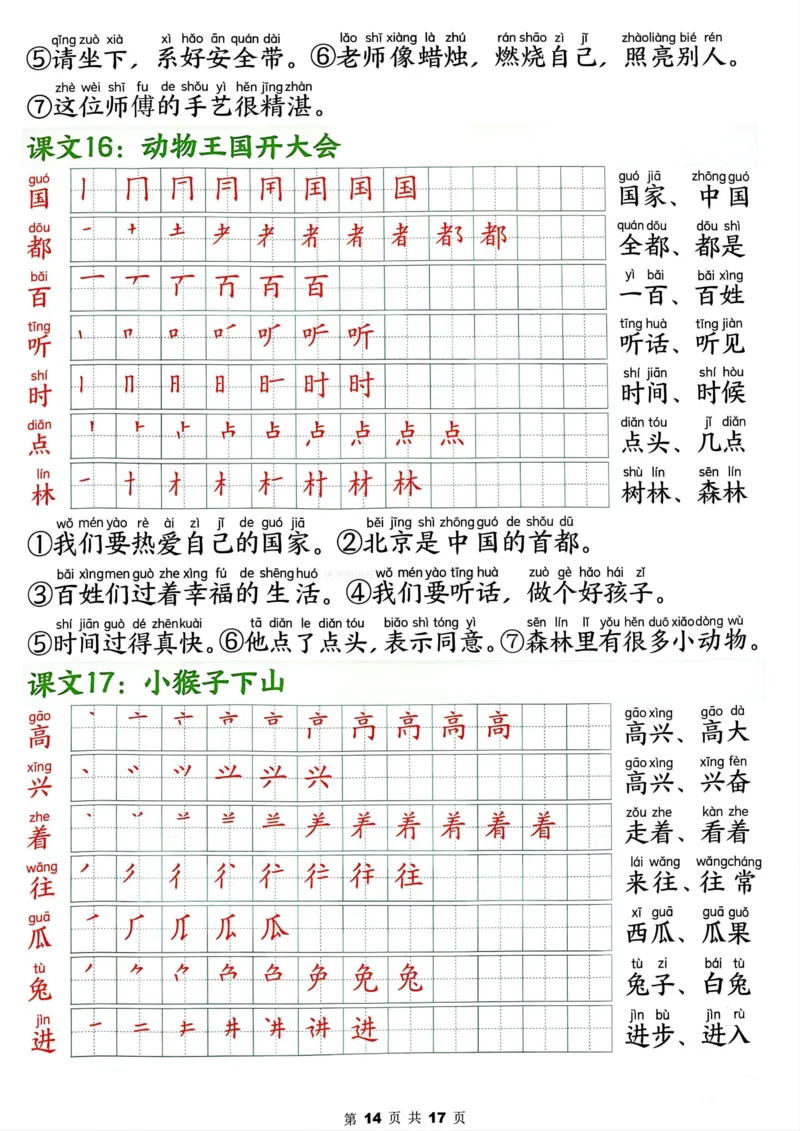 qǐng zuò xià xì hǎo ān quán dài lǎo shī xiàng là zhú rán shāo zì jǐ zhàoliàng bié rén
⑤请坐下，系好安全带。⑥老师像蜡烛，燃烧自己，照亮别人。
zhè wèi shī fu de shǒu yì hěn jīng zhàn
⑦这位师傅的手艺很精湛。
课文16：动物王国开大会
guó guó jiā zhōng guó
国 国 国家、中国
dōu quán dōu dōu shì
都 都 全都、都是
bǎi yì bǎi bǎi xìng
百 百 一百、百姓
tīng tīng huà tīng jiàn
听 听 听话、听见
shí shí jiān shí hòu
时 时 时间、时候
diǎn diǎn tóu jǐ diǎn
点 点 点头、几点
lín shù lín sēn lín
林 林 树林、森林
wǒ mén yào rè ài zì jǐ de guó jiā běi jīng shì zhōng guó de shǒu dū
①我们要热爱自己的国家。②北京是中国的首都。
bǎi xìng men guò zhe xìng fú de shēng huó wǒ mén yào tīng huà zuò gè hǎo hái zǐ
③百姓们过着幸福的生活。④我们要听话，做个好孩子。
shí jiān guò dé zhēn kuài tā diǎn le diǎn tóu biǎo shì tóng yì sēn lín lǐ yǒu hěn duō xiǎo dòng wù
⑤时间过得真快。⑥他点了点头，表示同意。⑦森林里有很多小动物。
课文17：小猴子下山
gāo gāo xìng gāo dà
高 高 高兴、高大
xīng gāo xìng xīng fèn
兴 兴 高兴、兴奋
zhe zǒu zhe kàn zhe
着 着 走着、看着
wǎng lái wǎng wǎng cháng
往 往 来往、往常
guā xī guā guā guǒ
瓜 瓜 西瓜、瓜果
tù tù zi bái tù
兔 兔 兔子、白兔
jìn jìn bù jìn rù
进 进 进步、进入
第 14 页 共 17 页